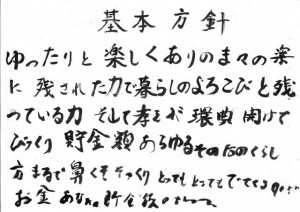 基本方針
ゆったりと楽しくありのままの楽
に残された力で暮らしのよろこびと残
っている力 そして 環 開けて
びっくり 貯金額 あらゆるそのくらし
方まるで鼻くそそっくり とってもとってもでてくる
お金 あなた 貯金